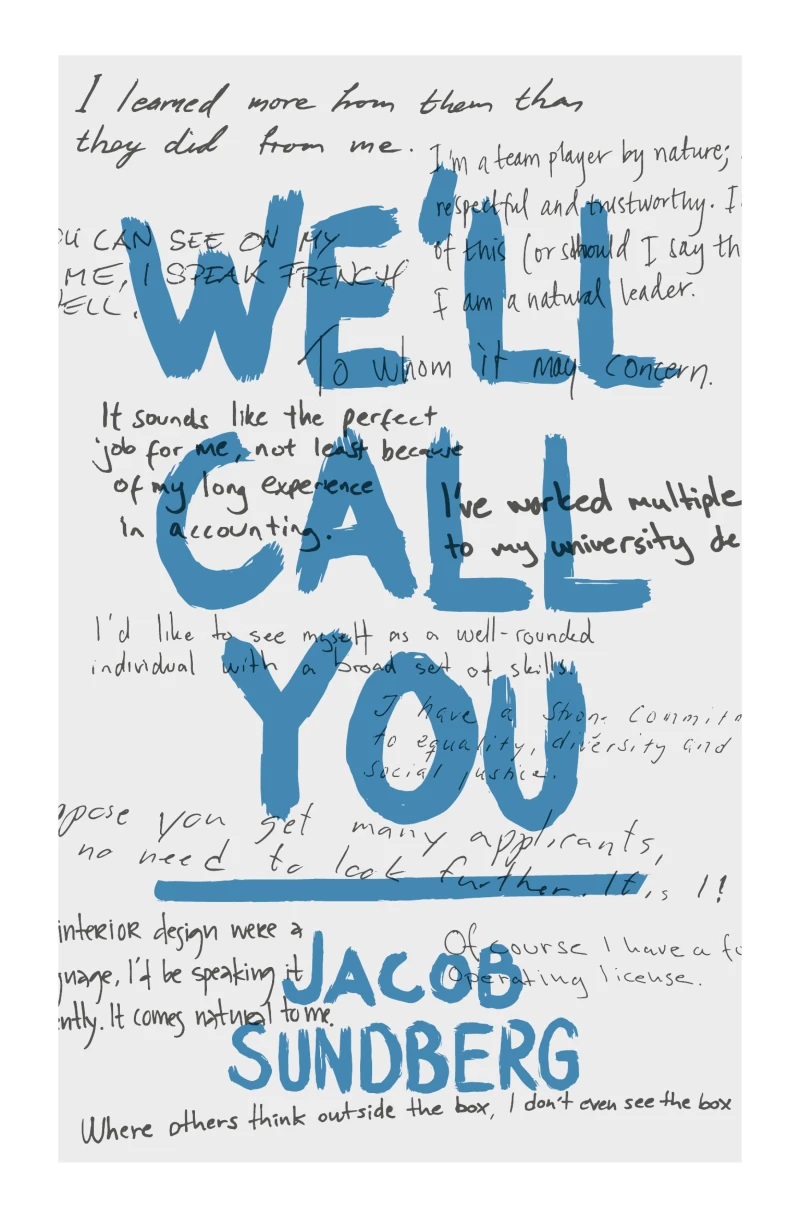 I learned more from them than
they did from me.
I'm a team player by nature;
respectful and trustworthy. I
of this (or should I say th
I am a natural leader.
OU CAN SEE ON MY
ME, I SPEAK FRENCH
ELL.
WE'LL
To whom it may concern.
It sounds like the perfect
job for me, not least because
of my long experience
in accounting.
I've worked multiple
to my university de
CALL
I'd like to see myself as a well-rounded
individual with a broad set of skills.
YOU
I have a strong commitm
to equality, diversity and
social justice.
pose you get many applicants,
no need to look further. It is I!
interior design were a
guage, I'd be speaking it
ntly. It comes natural to me.
Of course I have a fo
Operating license.
JACOB
SUNDBERG
Where others think outside the box, I don't even see the box